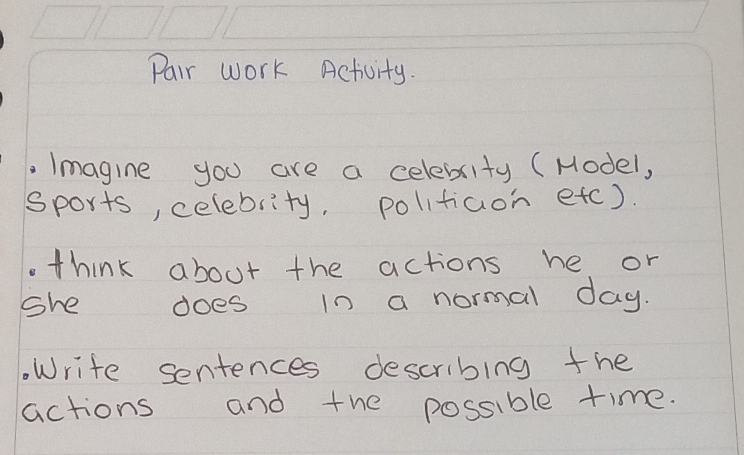 Pair Work Activity.
• Imagine you are a celebrity (Model,
Sports, celebrity, politición etc).
• think about the actions he or
She does in a normal day.
• Write sentences describing the
actions and the possible time.